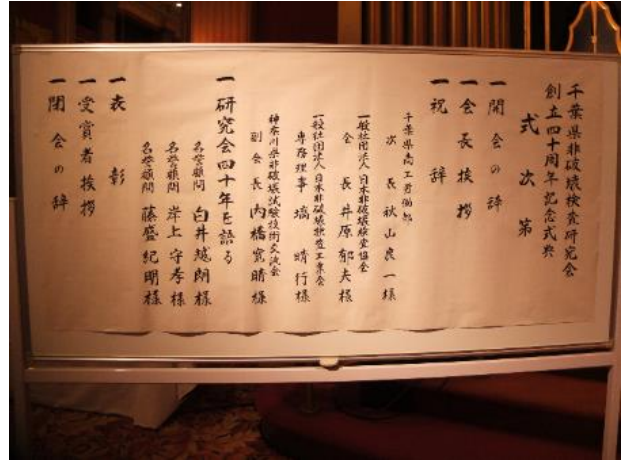 千葉県非破壊検査研究会
創立四十周年記念式典
式次第
一開会の辞
一会長挨拶
一祝辞
千葉県商工労働部
次長 秋山良一様
一般社団法人日本非破壊検査協会
会長 井原郁夫様
一般社団法人日本非破壊検査工業会
専務理事 塙晴行様
神奈川県非破壊試験技術交流会
副会長 内橋寛晴様
一研究会四十年を語る
名誉顧問 白井越朗様
名誉顧問 岸上守孝様
名誉顧問 藤盛紀明様
一表彰
一受賞者挨拶
一閉会の辞